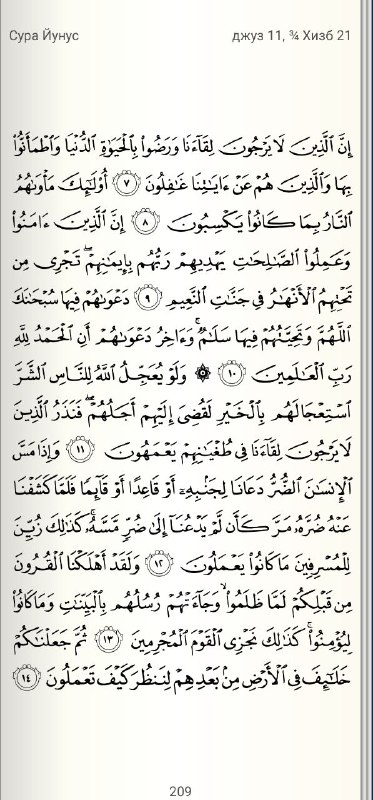 Сура Йунус
джуз 11, ¾ Хизб 21
إِنَّ ٱلَّذِينَ لَا يَرۡجُونَ لِقَآءَنَا وَرَضُواْ بِٱلۡحَيَوٰةِ ٱلدُّنۡيَا وَٱطۡمَأَنُّواْ
بِهَا وَٱلَّذِينَ هُمۡ عَنۡ ءَايَٰتِنَا غَٰفِلُونَ ٧ أُوْلَٰٓئِكَ مَأۡوَىٰهُمُ
ٱلنَّارُ بِمَا كَانُواْ يَكۡسِبُونَ ٨ إِنَّ ٱلَّذِينَ ءَامَنُواْ
وَعَمِلُواْ ٱلصَّٰلِحَٰتِ يَهۡدِيهِمۡ رَبُّهُم بِإِيمَٰنِهِمۡۖ تَجۡرِي مِن
تَحۡتِهِمُ ٱلۡأَنۡهَٰرُ فِي جَنَّٰتِ ٱلنَّعِيمِ ٩ دَعۡوَىٰهُمۡ فِيهَا سُبۡحَٰنَكَ
ٱللَّهُمَّ وَتَحِيَّتُهُمۡ فِيهَا سَلَٰمٞۚ وَءَاخِرُ دَعۡوَىٰهُمۡ أَنِ ٱلۡحَمۡدُ لِلَّهِ
رَبِّ ٱلۡعَٰلَمِينَ ١٠ ۞ وَلَوۡ يُعَجِّلُ ٱللَّهُ لِلنَّاسِ ٱلشَّرَّ
ٱسۡتِعۡجَالَهُم بِٱلۡخَيۡرِ لَقُضِيَ إِلَيۡهِمۡ أَجَلُهُمۡۖ فَنَذَرُ ٱلَّذِينَ
لَا يَرۡجُونَ لِقَآءَنَا فِي طُغۡيَٰنِهِمۡ يَعۡمَهُونَ ١١ وَإِذَا مَسَّ
ٱلۡإِنسَٰنَ ٱلضُّرُّ دَعَانَا لِجَنۢبِهِۦٓ أَوۡ قَاعِدًا أَوۡ قَآئِمٗا فَلَمَّا كَشَفۡنَا
عَنۡهُ ضُرَّهُۥ مَرَّ كَأَن لَّمۡ يَدۡعُنَآ إِلَىٰ ضُرّٖ مَّسَّهُۥۚ كَذَٰلِكَ زُيِّنَ
لِلۡمُسۡرِفِينَ مَا كَانُواْ يَعۡمَلُونَ ١٢ وَلَقَدۡ أَهۡلَكۡنَا ٱلۡقُرُونَ
مِن قَبۡلِكُمۡ لَمَّا ظَلَمُواْ وَجَآءَتۡهُمۡ رُسُلُهُم بِٱلۡبَيِّنَٰتِ وَمَا كَانُواْ
لِيُؤۡمِنُواْۚ كَذَٰلِكَ نَجۡزِي ٱلۡقَوۡمَ ٱلۡمُجۡرِمِينَ ١٣ ثُمَّ جَعَلۡنَٰكُمۡ
خَلَٰٓئِفَ فِي ٱلۡأَرۡضِ مِنۢ بَعۡدِهِمۡ لِنَنظُرَ كَيۡفَ تَعۡمَلُونَ ١٤
209